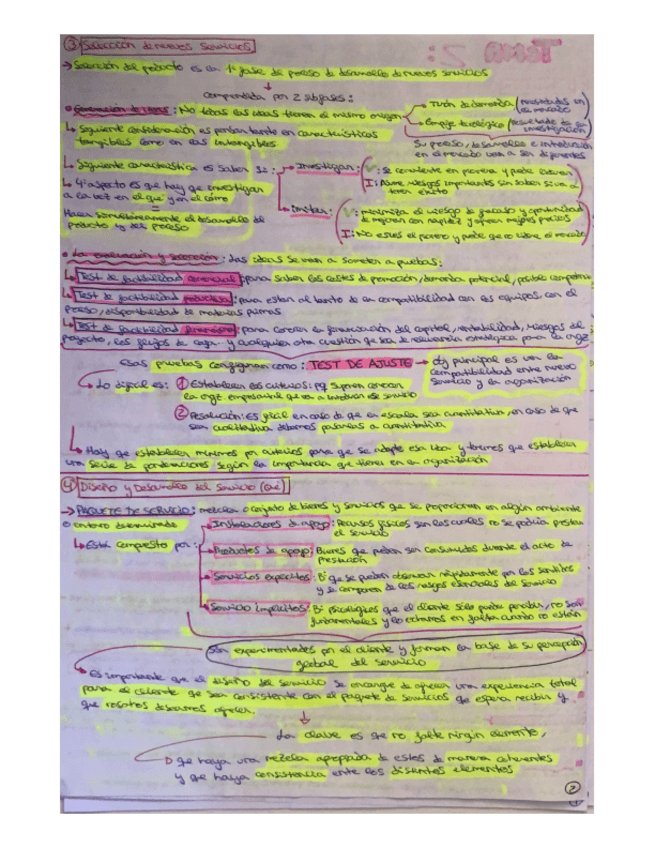 ③ Selección de nuevos Servicios
TEMA 2:
→ Selección del producto es la 1ª fase de proceso de desarrollo de nuevos servicios
Comprendida por 2 subfases:
• Generación de ideas: No todas las ideas tienen el mismo origen
Tirón de demanda (necesidades en el mercado)
Empuje tecnológico (resultado de la investigación)
↳ Siguiente consideración es
en características
tangibles como en las intangibles
Su proceso, desarrollo e introducción
en el mercado van a ser diferentes
↳ Siguiente característica es saber si:
→ Investigar: V: se convierte en pionera y puede
I: Asume riesgos importantes sin saber si va a tener éxito
↳ 4º aspecto es que hay que investigar
a la vez en el qué y en el cómo
→ imitar: V: minimiza el riesgo de fracaso y oportunidad
de mejorar con rapidez y ofrecer mejores precios
I: No es el pionero y puede que
el mercado
Hacer simultáneamente el desarrollo del
producto y del proceso
• La evaluación y selección: Las ideas se van a someter a pruebas:
↳ Test de factibilidad comercial: para saber los costes de promoción, demanda potencial, posible competencia
↳ Test de factibilidad productiva: para estar al tanto de la compatibilidad con los equipos, con el
proceso, disponibilidad de materias primas
↳ Test de factibilidad financiera: para conocer la financiación del capital, rentabilidad, riesgos del
proyecto, los flujos de caja y cualquier otra cuestión que sea de relevancia estratégica para la orgz
Esas pruebas configuran como: TEST DE AJUSTE → obj principal es ver la
compatibilidad entre nuevo
servicio y la organización
↳ Lo difícil es: ① Establecer los criterios: pq suponen conocer
la orgz empresarial que va a introducir ese servicio
② Resolución: Es fácil en caso de que la escala sea cuantitativa, en caso de que
sea cualitativa debemos pasarlas a cuantitativa
↳ Hay que establecer mínimos por criterios para que se adopte esa idea y tenemos que establecer
una serie de ponderaciones según la importancia que tienen en la organización
④ Diseño y Desarrollo del Servicio (qué)
→ PAQUETE DE SERVICIO: mezcla o conjunto de bienes y servicios que se proporcionan en algún ambiente
o entorno determinado
↳ Está compuesto por:
Instalaciones de apoyo: Recursos físicos sin los cuales no se podría prestar
el servicio
Productos de apoyo: Bienes que pueden ser consumidos durante el acto de
prestación
Servicios explícitos: Bº que se pueden observar rápidamente por los sentidos
y se compone de los rasgos esenciales del servicio
Servicio implícitos: Bº psicológicos que el cliente sólo puede percibir, no son
fundamentales y los echamos en falta cuando no están
Son experimentados por el cliente y forman la base de su percepción
global del servicio
Es importante que el diseño del servicio se encargue de ofrecer una experiencia total
para el cliente que sea consistente con el paquete de servicios que espera recibir y
que nosotros deseamos ofrecer.
La clave es que no falte ningún elemento,
que haya una mezcla apropiada de estos de manera coherentes
y que haya consistencia entre los distintos elementos
②